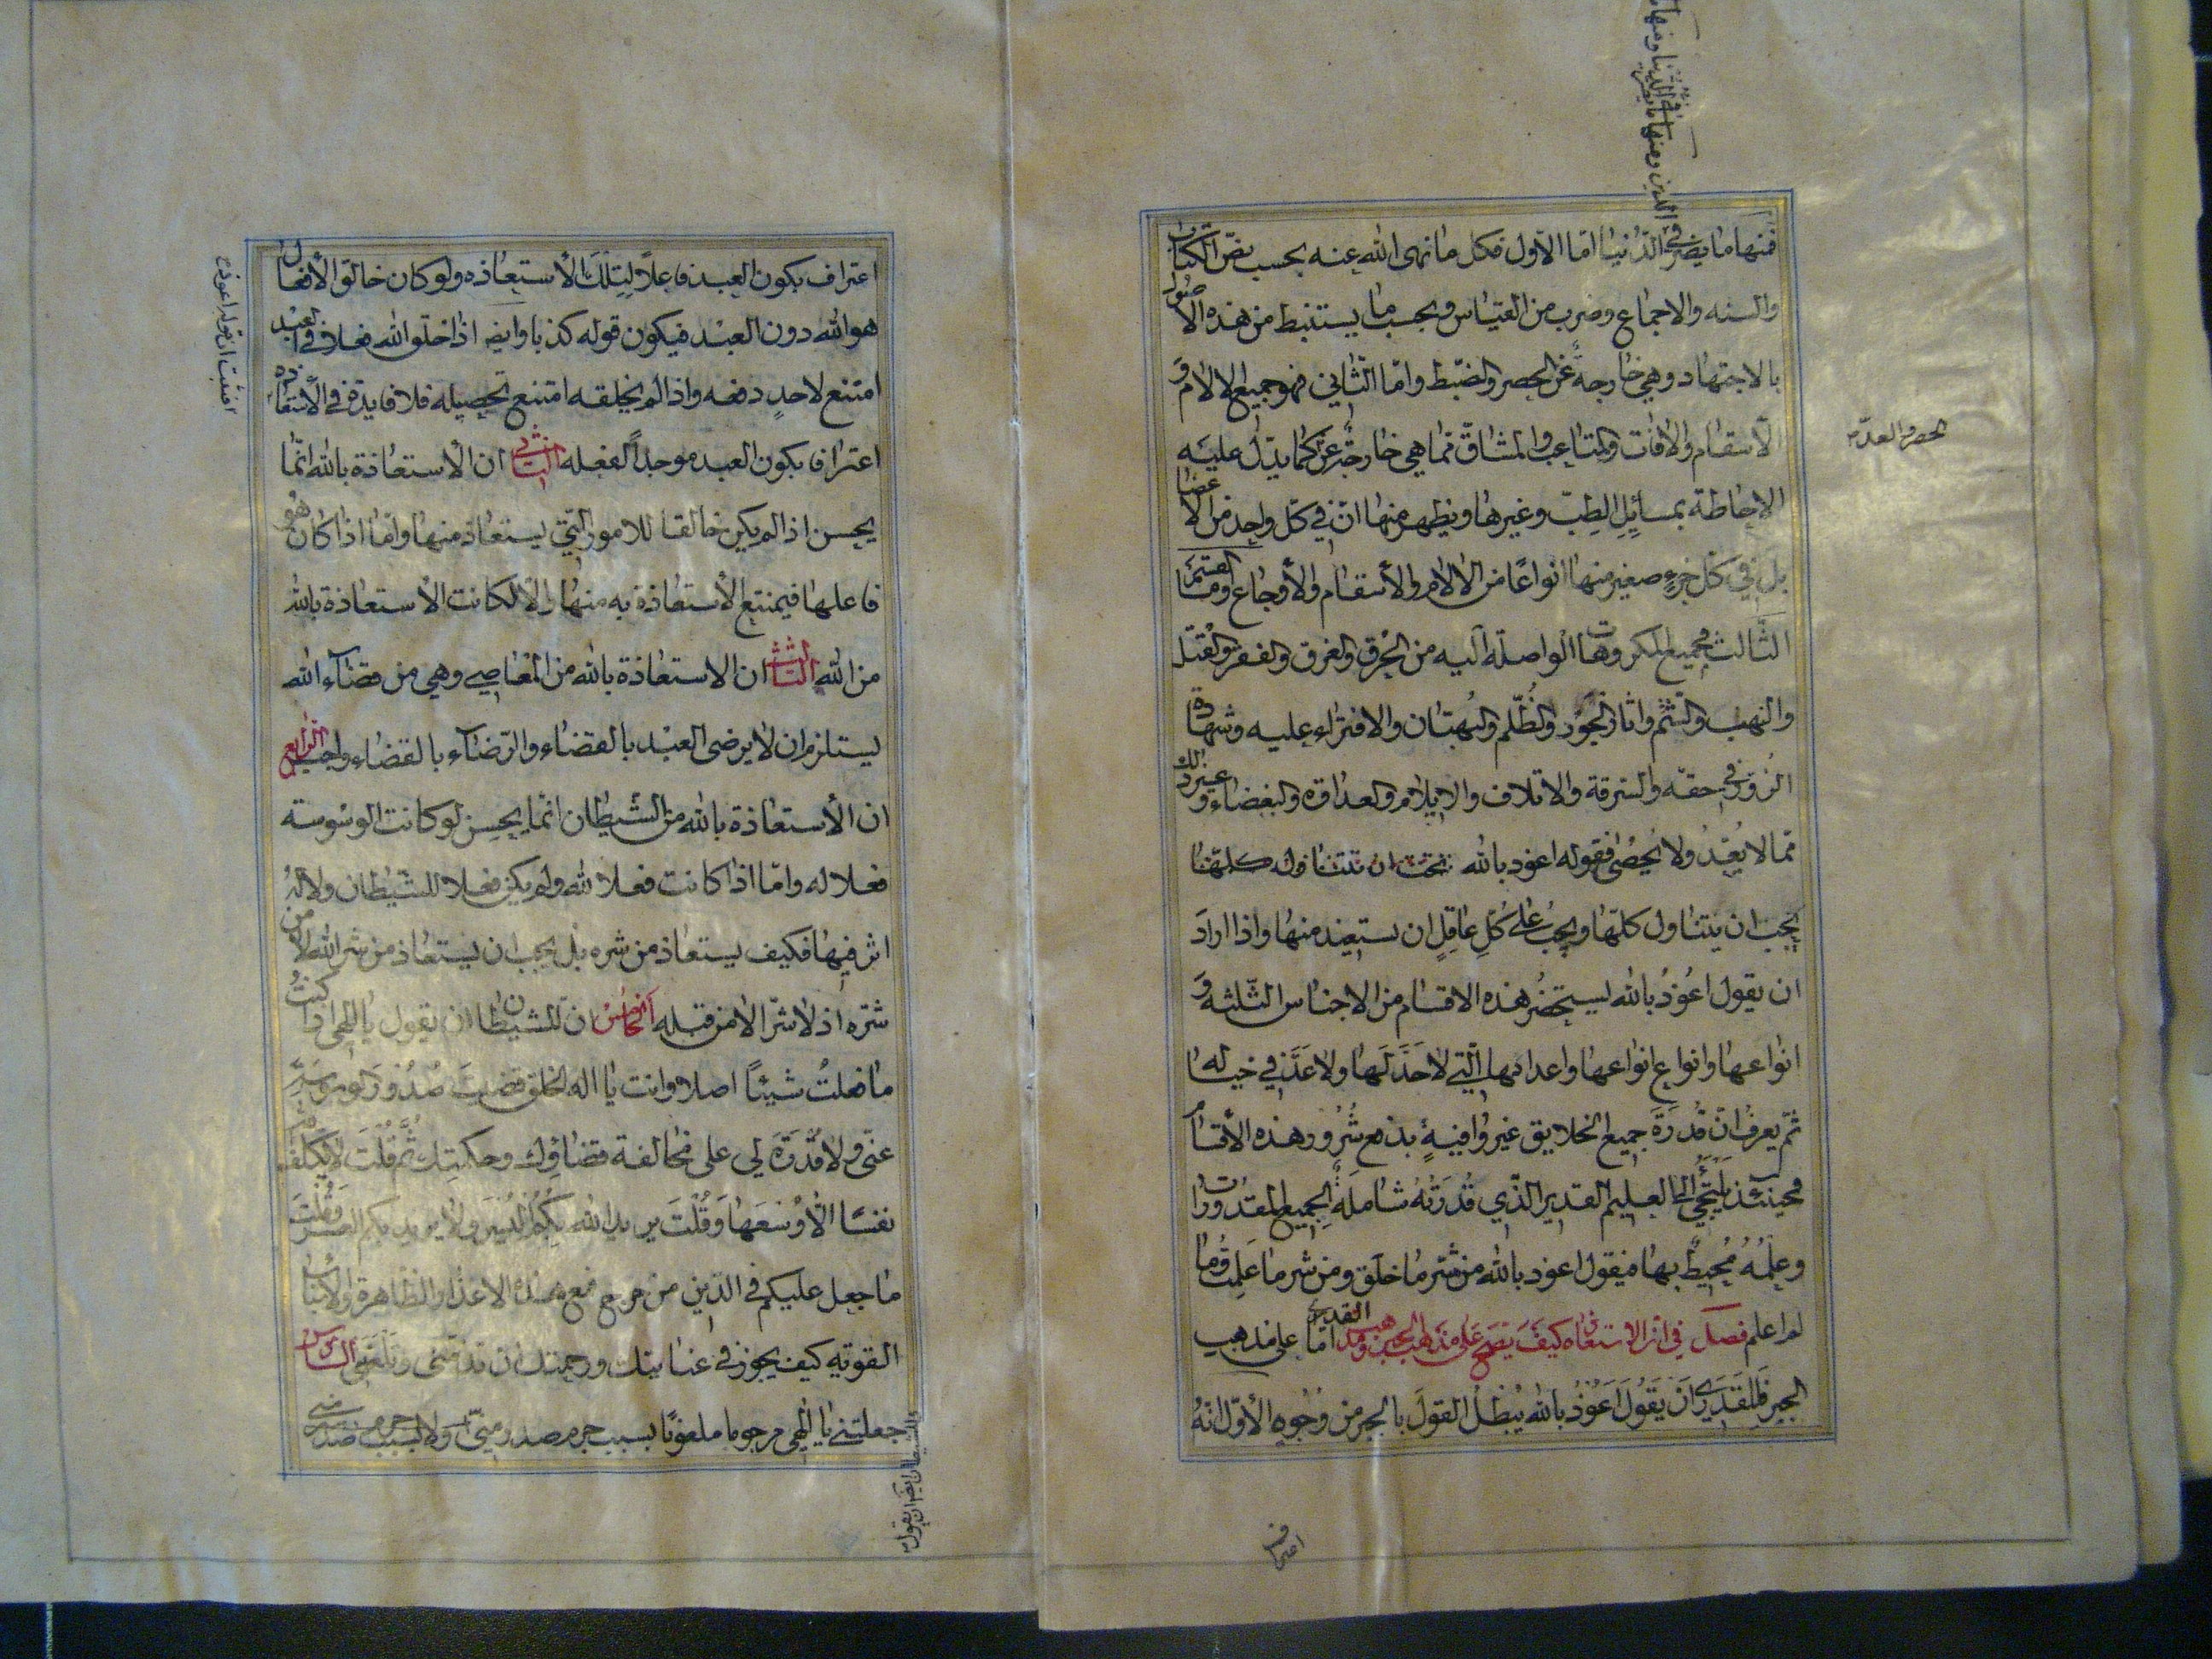 فمنها ما يضر في الدنيا اما الاول فكل ما نهى الله عنه بحسب نص الكتاب
والسنه والاجماع وضرب من القياس وبحسب ما يستنبط من هذه الاصول
بالاجتهاد وهي خارجة عن الحصر والضبط واما الثاني فهو جميع الالام و
الاسقام والافات والمتاعب والمشاق فما هي خارجة عن كما يدل عليه
الاحاطة بمسائل الطب وغيرها ويظهر منها ان في كل واحد من الاعضا
بل في كل جزء صغير منها انواعا من الالام والاسقام والاوجاع وما القسم
الثالث فجميع المكروهات الواصله اليه من الحرق والغرق والفقر والقتل
والنهب والشتم واثار الجور والظلم والبهتان والافتراء عليه وشهادة
الزور في حقه والسرقة والاتلاف والايلام والعداوة والبغضاء وغير ذلك
مما لا يعد ولا يحصى فقوله اعوذ بالله يجب ان تتناول كلها
يجب ان يتناول كلها ويجب على كل عاقل ان يستعيذ منها واذا اراد
ان يقول اعوذ بالله ليستحضر هذه الاقسام من الاجناس الثلثه و
انواعها وانواع انواعها واعدادها التي لا حد لها ولا عد في خياله
ثم يعرف ان قدرة جميع الخلايق غير وافية بدفع شرور هذه الاقسام
فحينئذ يلتجئ الى العليم القدير الذي قدرته شاملة لجميع المقدورات
وعلمه محيط بها فيقول اعوذ بالله من شر ما خلق ومن شر ما علمت وما
لم اعلم فصل في ان الاستعاذه كيف يصح على مذهب الجبر ومذهب القدر اما على مذهب
الجبر فللقدري ان يقول اعوذ بالله يبطل القول بالجبر من وجوه الاول انه
الحصر والعد
اعتراف بكون العبد فاعلا لتلك الاستعاذه ولو كان خالق الافعال
هو الله دون العبد فيكون قوله كذبا وايضا اذا خلق الله فعلا في العبد
امتنع لاحد دفعه واذا لم يخلقه امتنع تحصيله فلا فايدة في الاستعاذه
اعترافا بكون العبد موجدا لفعله الثاني ان الاستعاذة بالله انما
يحسن اذا لم يكن خالقا للامور التي يستعاذ منها واما اذا كان هو
فاعلها فيمتنع الاستعاذة به منها والا لكانت الاستعاذة بالله
من الله الثالث ان الاستعاذة بالله من المعاصي وهي من قضاء الله
يستلزم ان لا يرضى العبد بالقضاء والرضاء بالقضاء واجب الرابع
ان الاستعاذة بالله من الشيطان انما يحسن لو كانت الوسوسة
فعلا له واما اذا كانت فعلا لله ولم يكن فعلا للشيطان ولا له
اثر فيها فكيف يستعاذ من شره بل يجب ان يستعاذ من شر الله لا من
شره اذ لا شر الا من قبله الخامس ان للشيطان ان يقول يا الهي اذا كنت
ما فعلت شيئا اصلا وانت يا اله الخلق قضيت صدور
عني ولا قدرة لي على مخالفة قضاؤك وحكمتك ثم قلت لا يكلف الله
نفسا الا وسعها وقلت يريد الله بكم اليسر ولا يريد بكم العسر وقلت
ما جعل عليكم في الدين من حرج فمع هذه الاعذار الظاهرة والاسباب
القوية كيف يجوز في عنايتك ورحمتك ان تذمني وتلعني السادس
جعلتني يا الهي مرجوما ملعونا بسبب جرم صدر مني او لا بسبب جرم صدر مني
للشيطان ايضا ان يقول